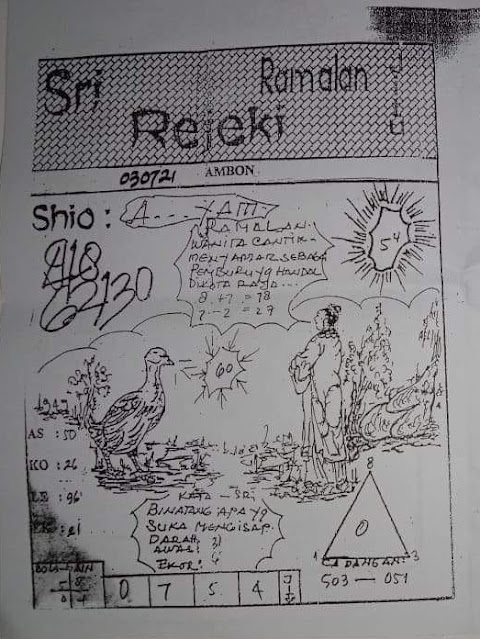 Sri
Ramalan
Rejeki
030721 AMBON
Shio : A...YAM
RAMALAN.
WANITA CANTIK
MENYAMAR SEBAGA
PEMBURU YG HANDAL
DIKOTA RAJA...
54
62130
60
AS : 50
KO : 26
: 96
: 21
KATA - SRI
BINATANG APA YG
SUKA MENGISAP
DARAH
AWAS:
EKOR:
8
0
1 3
CADANGAN:
503 — 051
0 7 5 4